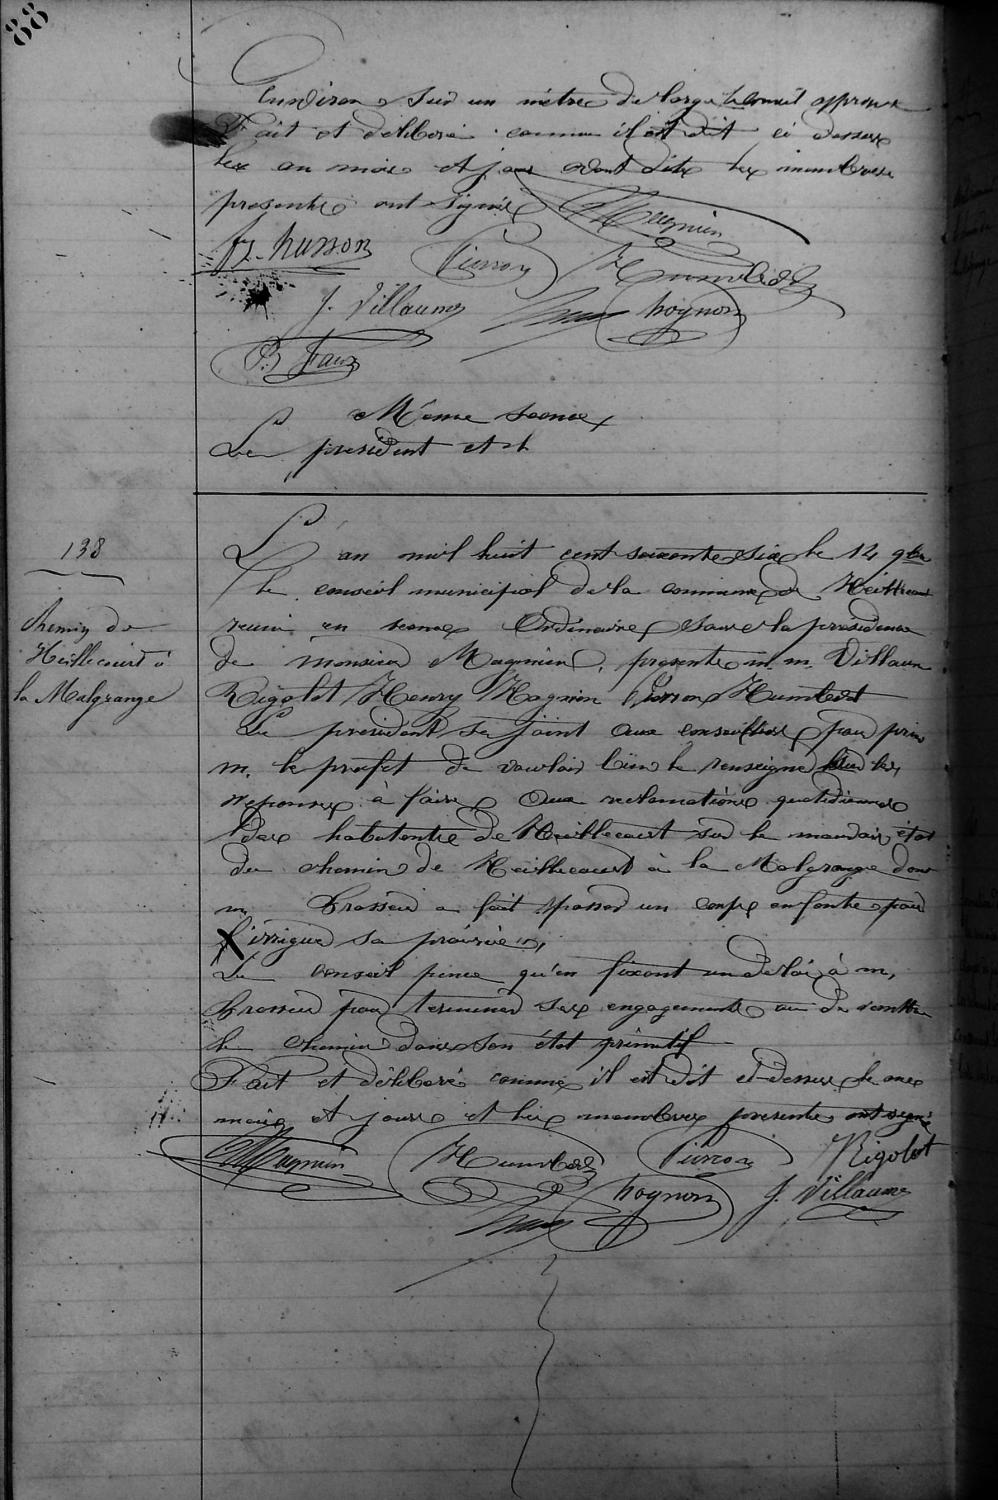 88
Environ Sur un mètre de large le conseil approuve
Fait et déliberé comme il est dit ci dessus
les an mois et jour avant dits les membres
presents ont signés Magnien
fr. husson Pierson Humbert
J. Villaume hognon
B. fraux
Même seance
Le president et
138
Chemin de
Heillecourt à
la Malgrange
L'an mil huit cent soixante six le 14 9bre
le conseil municipal de la commune de Heillecourt
reuni en seance Ordinaire Sous la presidence
de Monsieur Magnien, presents m.m. Villaum
Rigolot Henry Hognon Pierson Humbert
Le president se joint aux conseillers pour prier
m. le prefet de vouloir bien le renseigner sur les
reponses à faire aux reclamations quotidiennes
des habutants de Heillecourt sur le mauvais état
du chemin de Heillecourt à la Malgrange dont
m. Brasseur a fait passer un corps en fonte pour
l'irriguer sa prairie,
Le conseil pence qu'en fixant un delai à m,
Brasseur pour terminer ses engagements ou de remttre
le chemin dans son état primitif
Fait et déliberé comme il est dit ci-dessus le ans
mois et jours et les membres presents ont signé
Magnien Humbert Pierson Rigolot
hognon J. Villaume